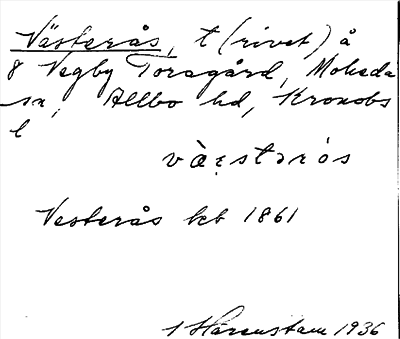 Västerås, t (rivet) å
8 Vegby Toragård, Moheda
sn, Allbo hd, Kronobs
l
và̀ɛ̣stərós
Vesterås kbt 1861
J Hårenstam 1936